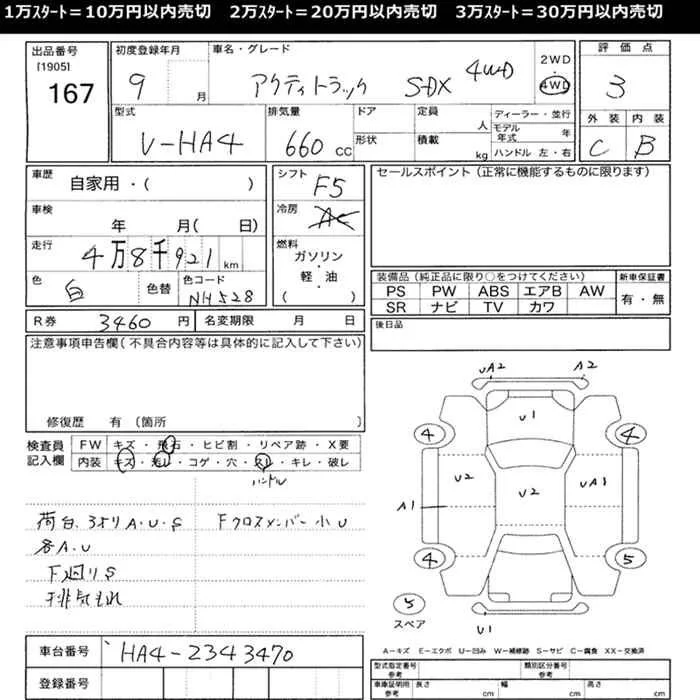 1万ｽﾀｰﾄ＝10万円以内売切　2万ｽﾀｰﾄ＝20万円以内売切　3万ｽﾀｰﾄ＝30万円以内売切
出品番号 [1905] 167
初度登録年月 9 月
車名・グレード アクティトラック S-DX 4WD
2WD 4WD
評価点 3
外装 C 内装 B
型式 V-HA4
排気量 660 cc
ドア 形状
定員 人 積載 kg
ディーラー・並行
モデル年式 年
ハンドル 左・右
車歴 自家用・( )
車検 年 月( 日)
走行 4万8千921 km
色 白 色替 色コード NH528
シフト F5
冷房 AC
燃料 ガソリン・軽・油 ( )
セールスポイント(正常に機能するものに限ります)
装備品(純正品に限り○をつけてください)
PS PW ABS エアB AW
SR ナビ TV カワ
新車保証書 有・無
R券 3460 円 名変期限 月 日
後日品
注意事項申告欄(不具合内容等は具体的に記入して下さい)
修復歴 有 (箇所 )
検査員記入欄
FW キズ・飛石・ヒビ割・リペア跡・X要
内装 キズ・汚レ・コゲ・穴・スレ・キレ・破レ
ハンドル
荷台、3方リA・U・S Fクロスメンバー小U
各A・U
下廻りS
排気もれ
UA2 A2
U1
4 4
U2 U2 UA1
A1
4 5
5 スペア
U1
A－キズ E－エクボ U－凹み W－補修跡 S－サビ C－腐食 XX－交換済
車台番号 HA4-2343470
登録番号
型式指定番号 参考 類別区分番号 参考
車庫証明用 参考 長さ cm 幅 cm 高さ cm